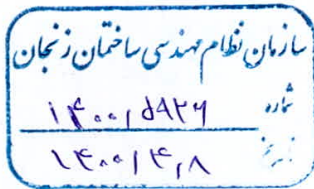 سازمان نظام مهندسی ساختمان زنجان
شماره ۱۴۰۰/۵۹۲۶
تاریخ ۱۴۰۰/۴/۸